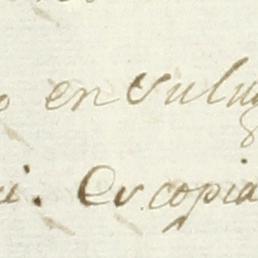 en vulu
i. Es copia